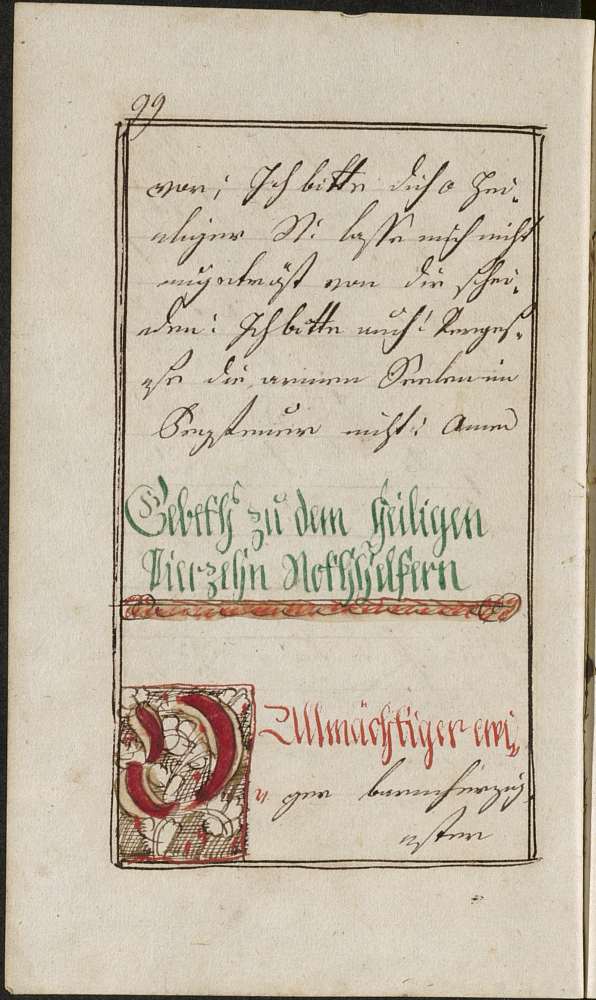 99
vor; Ich bitte dich o hei-
liger St: lasse mich nicht
ungetröst von dir schei-
den: Ich bitte auch! Verges-
se die armen Seelen im
Fegfeuer nicht: Amen
Gebeth zu dem heiligen
Vierzehn Nothhelfern
O Allmächtiger ewi-
ger barmherzig-
ster